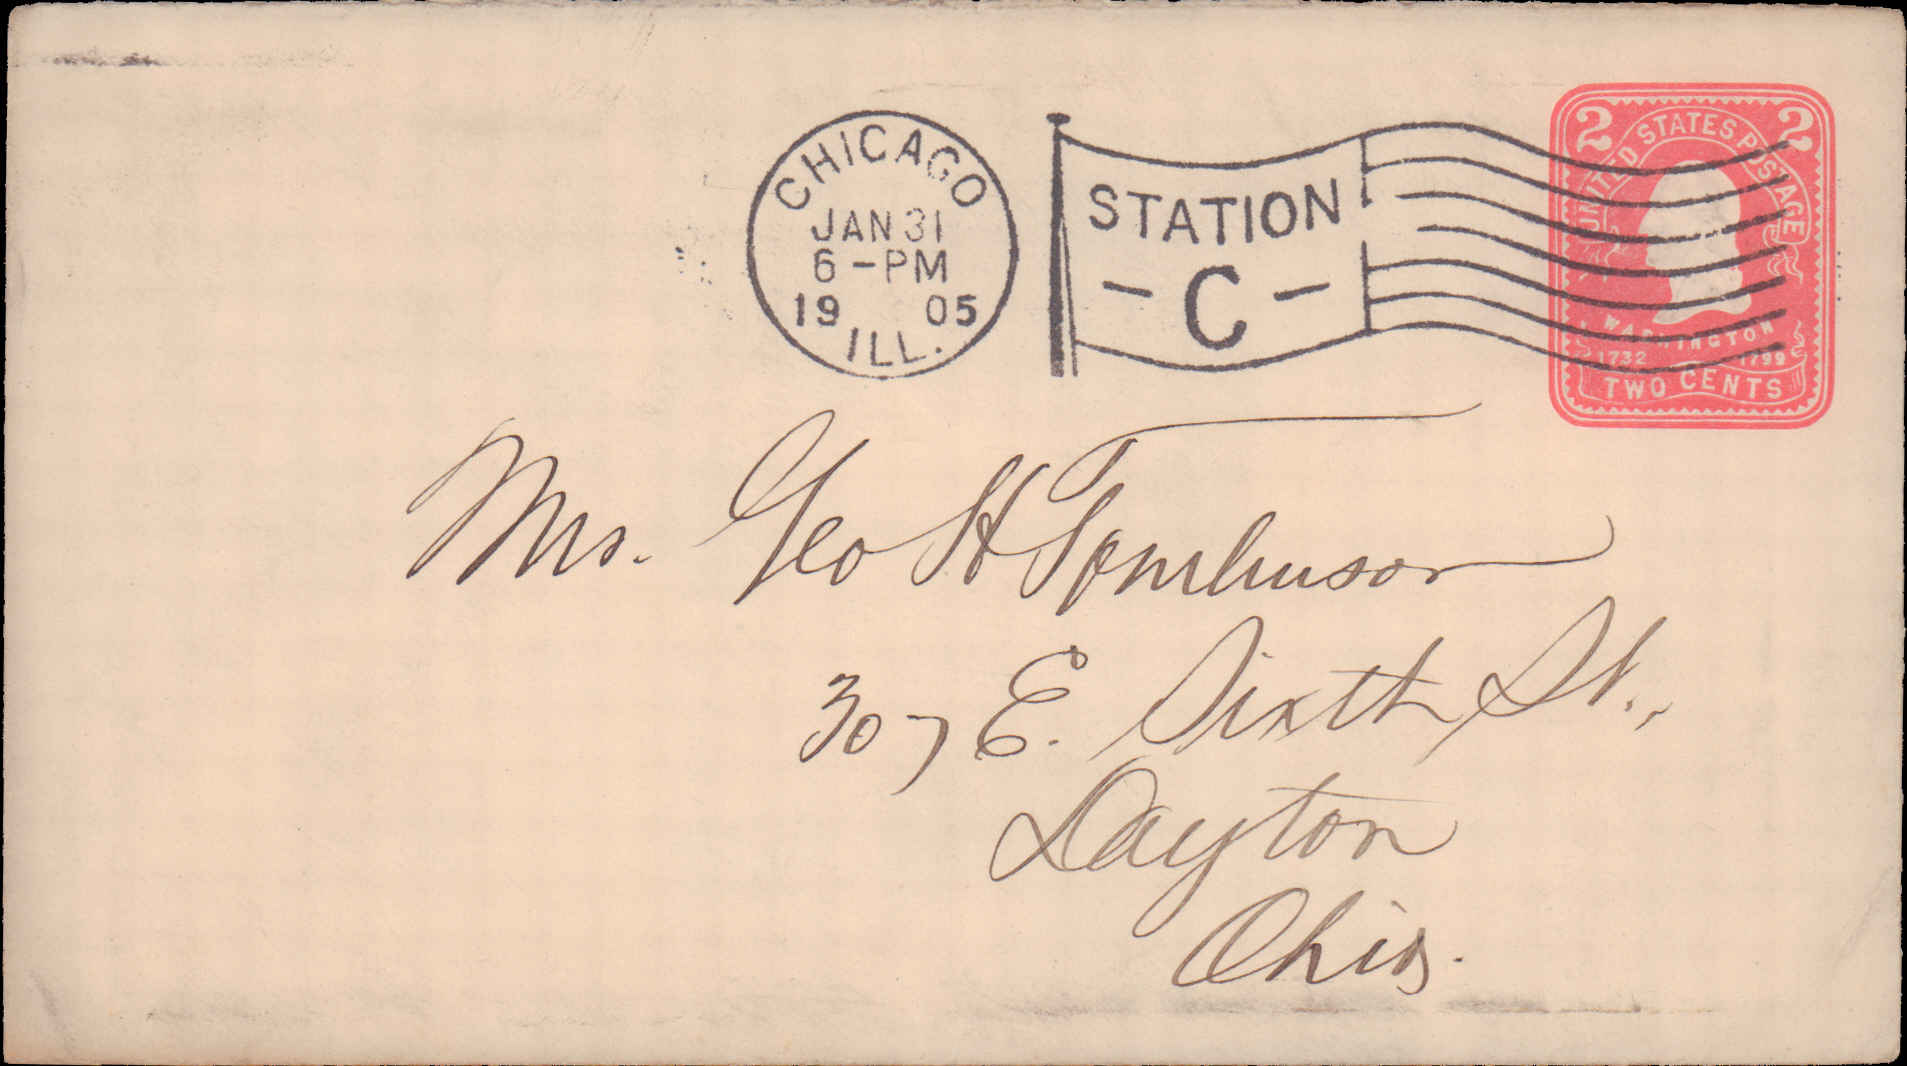 CHICAGO
JAN 31
6-PM
19 05
ILL.
STATION
- C -
2 2
UNITED STATES POSTAGE
WASHINGTON
1732 1799
TWO CENTS
Mrs. Geo H Tomlinson
307 E. Sixth St.,
Dayton
Ohio.